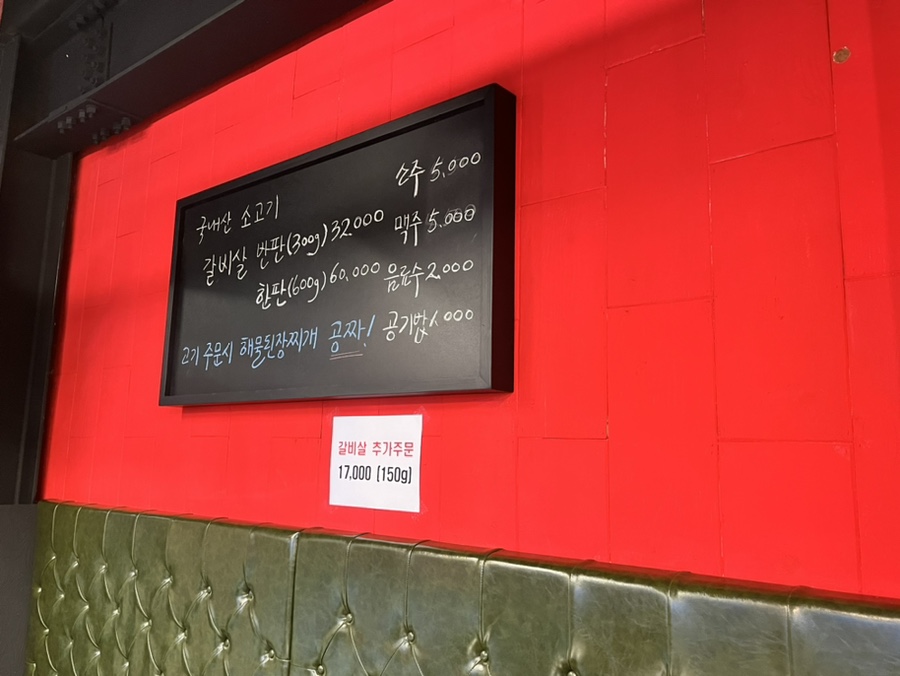 국내산 소고기
갈비살 반판(300g) 32000
한판(600g) 60,000
고기 주문시 해물된장찌개 공짜!
소주 5,000
맥주 5.000
음료수 2,000
공기밥 1,000
갈비살 추가주문
17,000 (150g)